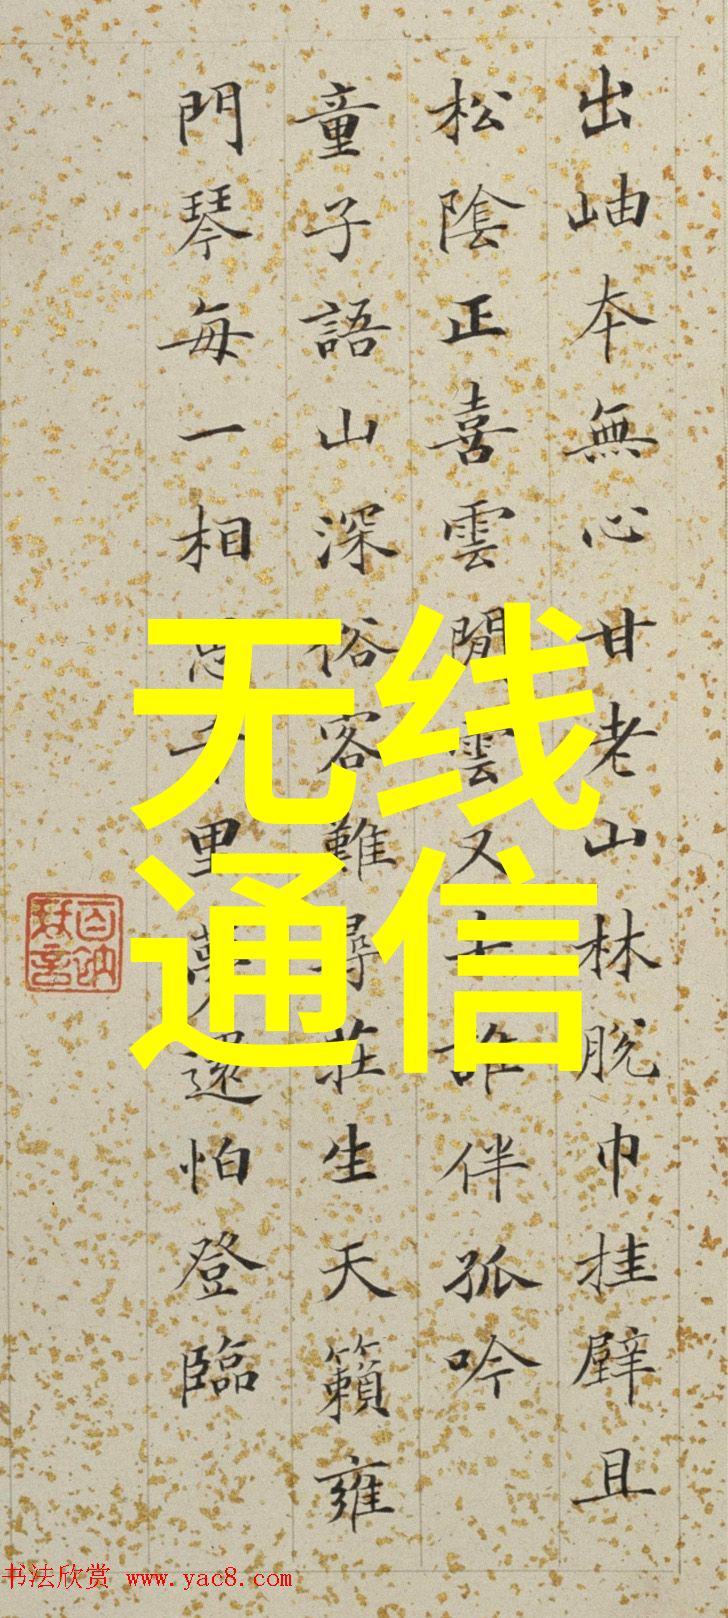 出岫本無心甘老山林脫巾挂壁且
松陰正喜雲閒雲又去誰伴孤吟
童子語山深俗客難尋莊生天籟雍
門琴每一相思千里夢還怕登臨
百衲琴言
无线
通信
书法欣赏 www.yac8.com